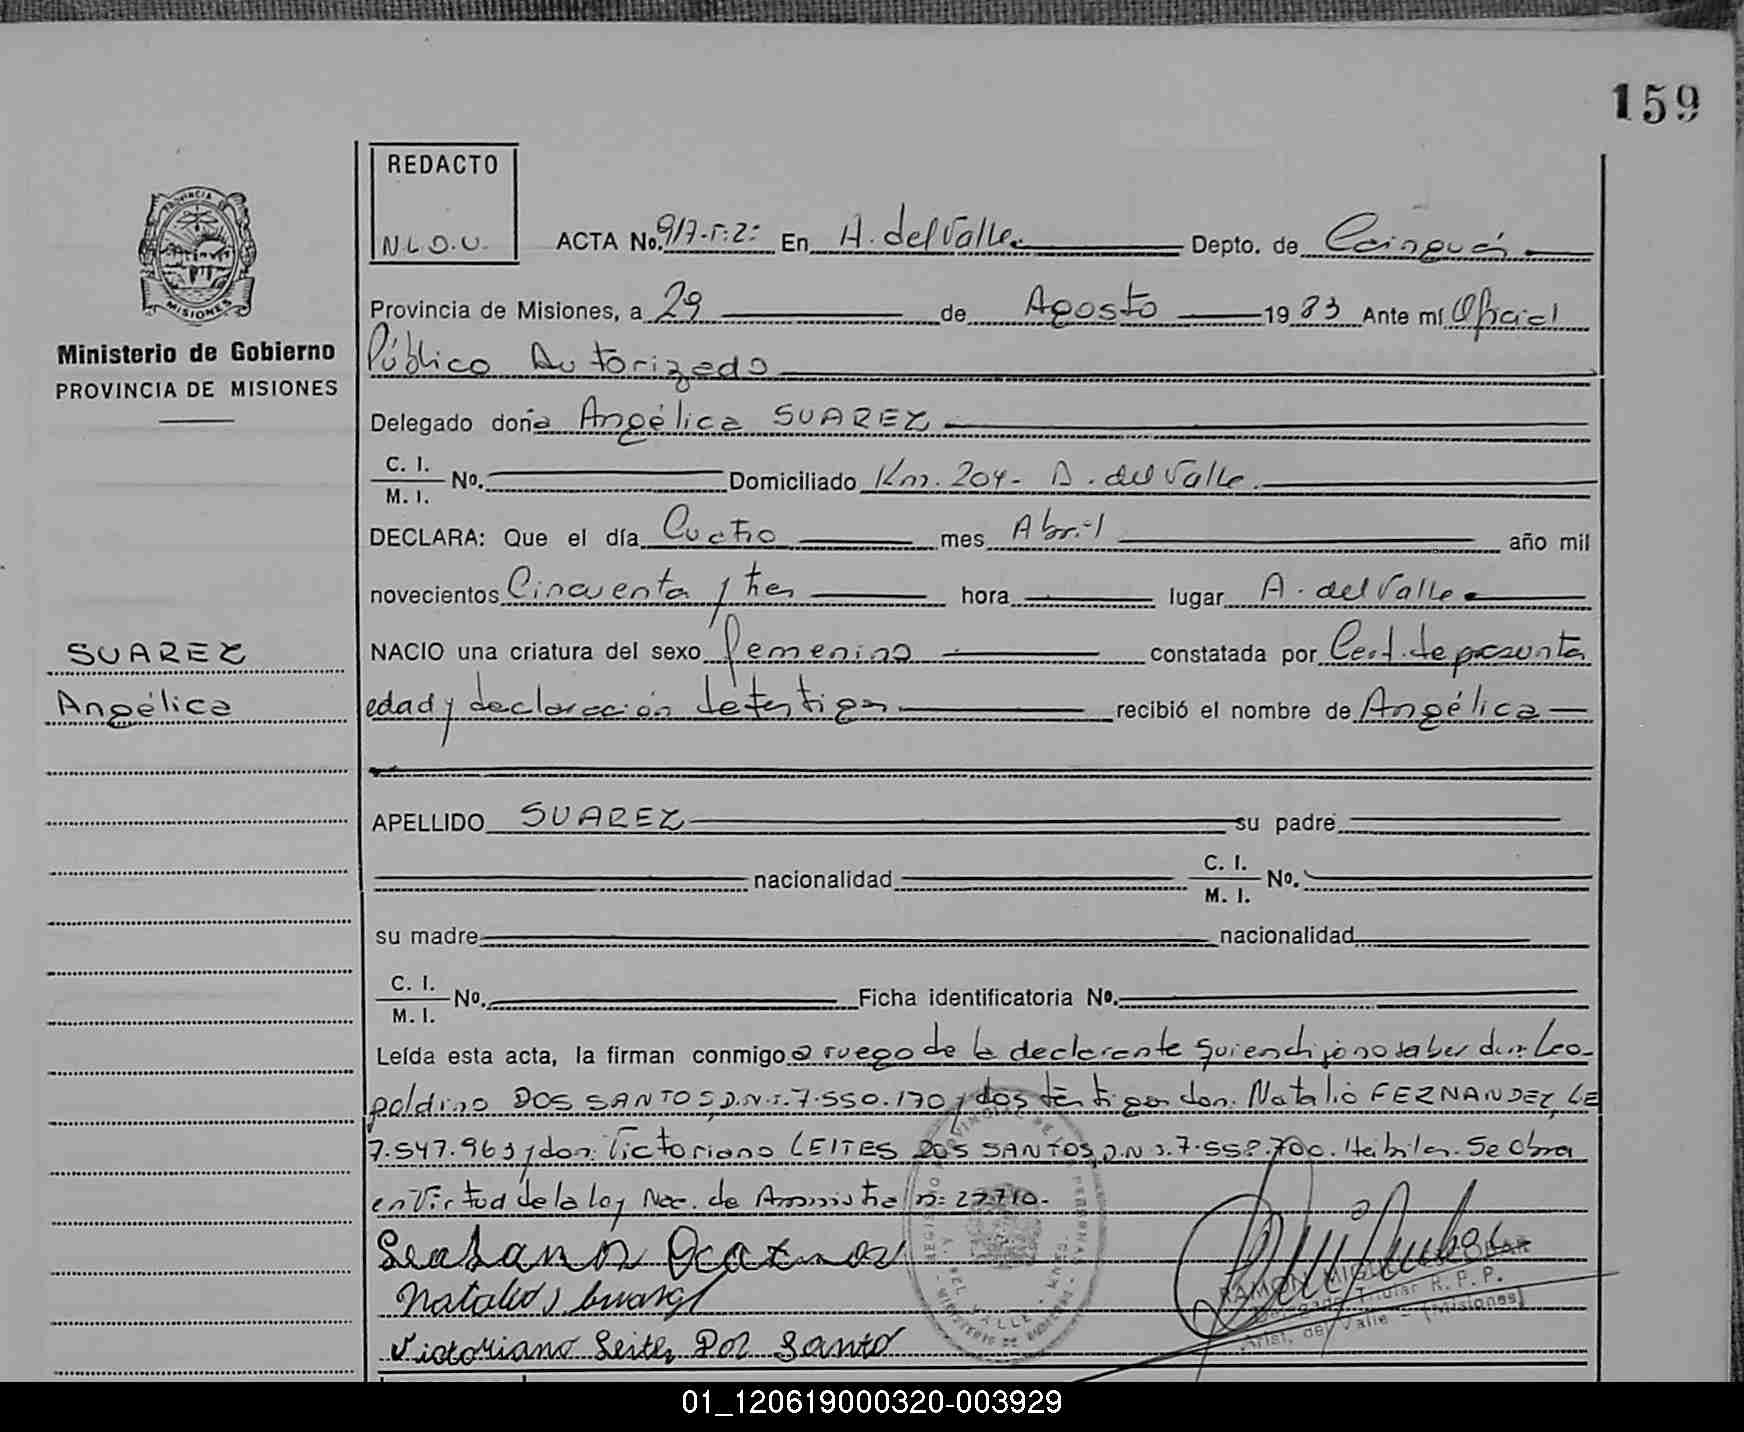 159
REDACTO
N.L.D.U.
ACTA No. 917-T:2: En A. del Valle. Depto. de Cainguás
PROVINCIA DE
MISIONES
Provincia de Misiones, a 29 de Agosto 1983 Ante mí Oficial
Ministerio de Gobierno
PROVINCIA DE MISIONES
Público Autorizado
Delegado doña Angélica SUAREZ
C. I.
M. I.
No. Domiciliado Km. 204- A. del Valle.
DECLARA: Que el día Cuatro mes Abril año mil
novecientos Cincuenta y tres hora lugar A. del Valle
SUAREZ
Angélica
NACIO una criatura del sexo femenino constatada por Cert. de presunta
edad y declaración de testigos recibió el nombre de Angélica
APELLIDO SUAREZ su padre
nacionalidad C. I.
M. I. No.
su madre nacionalidad
C. I.
M. I. No. Ficha identificatoria No.
Leída esta acta, la firman conmigo a ruego de la declarante quien dijo no saber don: Leo-
poldino DOS SANTOS, D.N.I. 7.550.170 y dos testigos don: Natalio FERNANDEZ, LE
7.547.963 y don: Victoriano LEITES DOS SANTOS, D.N.I. 7.558.700. Hábiles. Se obra
en Virtud de la Ley Nac. de Amnistía n: 22710.
Natalio
Victoriano Leites Dos Santo
RAMON MIGUEL
Delegado Titular R. P. P.
Arist. del Valle - (Misiones)
01_120619000320-003929